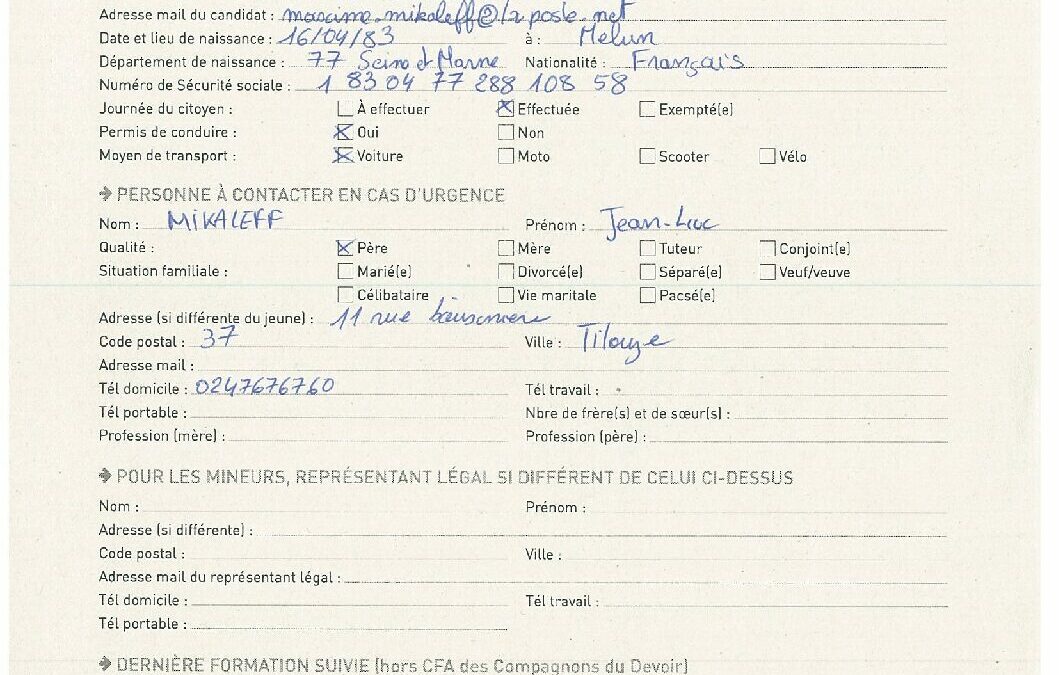 Adresse mail du candidat : maxime.mikaleff@laposte.net
Date et lieu de naissance : 16/04/83 à : Melun
Département de naissance : 77 Seine et Marne Nationalité : Français
Numéro de Sécurité sociale : 1 83 04 77 288 108 58
Journée du citoyen : À effectuer Effectuée Exempté(e)
Permis de conduire : Oui Non
Moyen de transport : Voiture Moto Scooter Vélo
PERSONNE À CONTACTER EN CAS D'URGENCE
Nom : MIKALEFF Prénom : Jean-Luc
Qualité : Père Mère Tuteur Conjoint(e)
Situation familiale : Marié(e) Divorcé(e) Séparé(e) Veuf/veuve
Célibataire Vie maritale Pacsé(e)
Adresse (si différente du jeune) : 11 rue
Code postal : 37 Ville :
Adresse mail :
Tél domicile : 0247676760 Tél travail :
Tél portable : Nbre de frère(s) et de sœur(s) :
Profession (mère) : Profession (père) :
POUR LES MINEURS, REPRÉSENTANT LÉGAL SI DIFFÉRENT DE CELUI CI-DESSUS
Nom : Prénom :
Adresse (si différente) :
Code postal : Ville :
Adresse mail du représentant légal :
Tél domicile : Tél travail :
Tél portable :
DERNIÈRE FORMATION SUIVIE (hors CFA des Compagnons du Devoir)